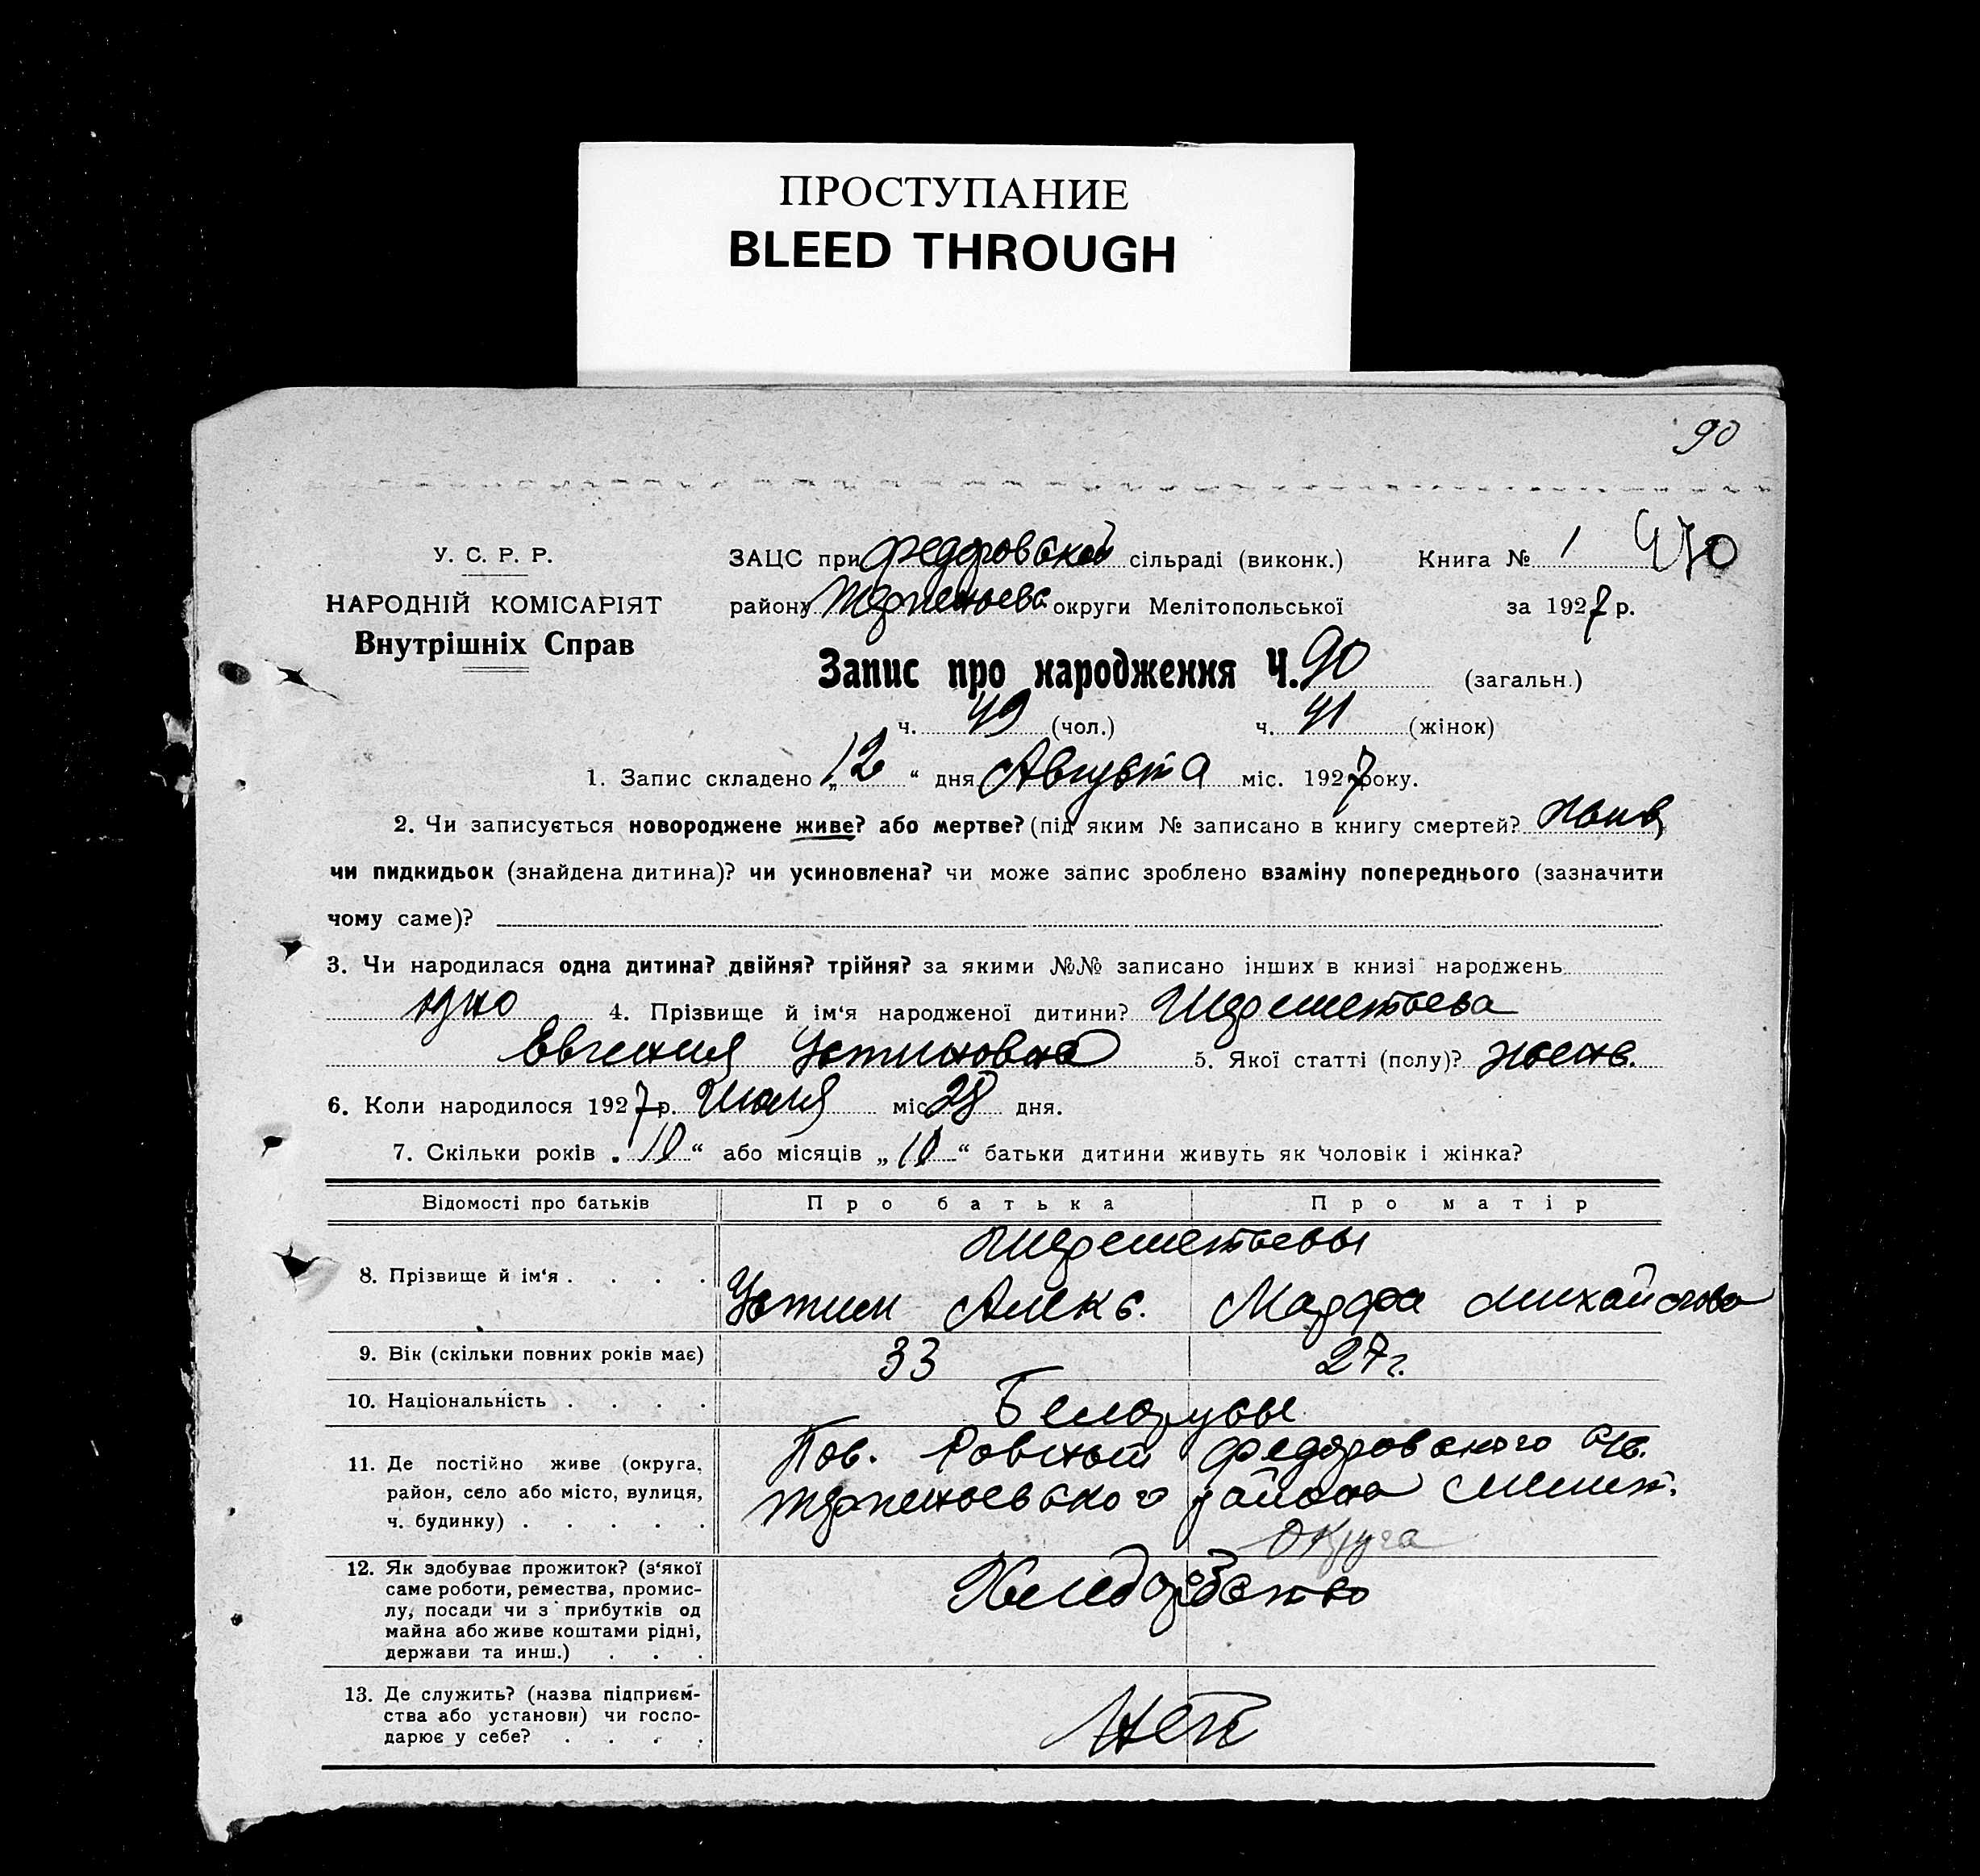 ПРОСТУПАНИЕ
BLEED THROUGH
90
У. С. Р. Р.
НАРОДНІЙ КОМІСАРІЯТ
Внутрішніх Справ
ЗАЦС при Федоровской сільраді (виконк.) Книга № 1 470
району округи Мелітопольської за 1927 р.
Запис про народження Ч. 90 (загальн.)
ч. 49 (чол.) ч. 41 (жінок)
1. Запис складено „12“ дня Августа міс. 1927 року.
2. Чи записується новороджене живе? або мертве? (під яким № записано в книгу смертей?
чи пидкидьок (знайдена дитина)? чи усиновлена? чи може запис зроблено взаміну попереднього (зазначити
чому саме)?
3. Чи народилася одна дитина? двійня? трійня? за якими №№ записано інших в книзі народжень
4. Прізвище й ім‘я народженої дитини? Шереметьева
Евгения Устиновна 5. Якої статті (полу)? женс.
6. Коли народилося 1927 р. Июля міс 28 дня.
7. Скільки років „10“ або місяців „10“ батьки дитини живуть як чоловік і жінка?
Відомості про батьків Про батька Про матір
Шереметьевы
8. Прізвище й ім‘я . . . . Устин Алекс. Марфа Михайлова
9. Вік (скільки повних років має) 33 27 г.
10. Національність . . . . Белорусы
11. Де постійно живе (округа, Пос. Ровный Федоровского с/с.
район, село або місто, вулиця, Терпеньевского района Мелит.
ч. будинку) . . . . . Округа
12. Як здобуває прожиток? (з‘якої
саме роботи, ремества, промис-
лу, посади чи з прибутків од
майна або живе коштами рідні,
держави та инш.) . . . Хлеборобство
13. Де служить? (назва підприєм-
ства або установи) чи госпо-
дарює у себе? . . . . Нет